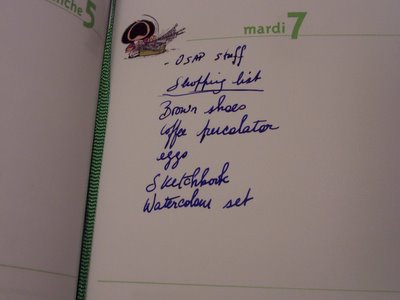 nche 5
mardi 7
- OSAP stuff
Shopping list
Brown shoes
Coffee percolator
eggs
Sketchbook
Watercolour set